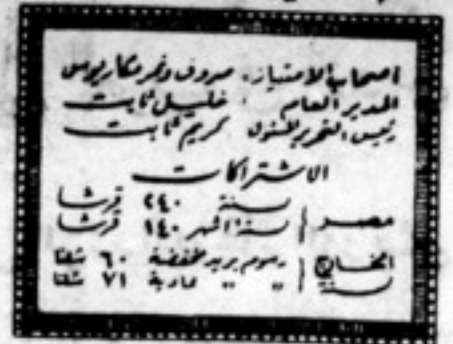 اصحاب الامتياز: صروف ونمر مكاريوس
المدير العام : خليل ثابت
رئيس التحرير المسئول كريم ثابت
الاشتراكات
مصر سنة ٢٤٠ قرشا
ستة اشهر ١٤٠ قرشا
الخارج رسوم بريد مخفضة ٦٠ شلنا
سنة " " عادية ٧١ شلنا